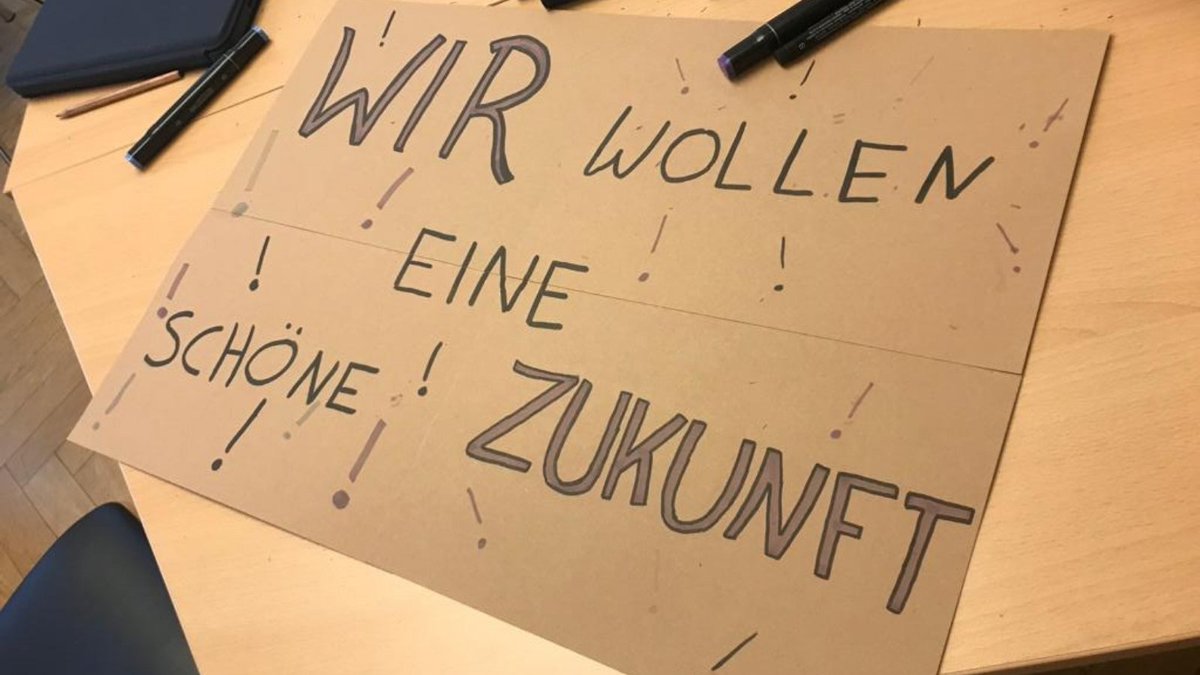 WIR WOLLEN
EINE
SCHÖNE ZUKUNFT